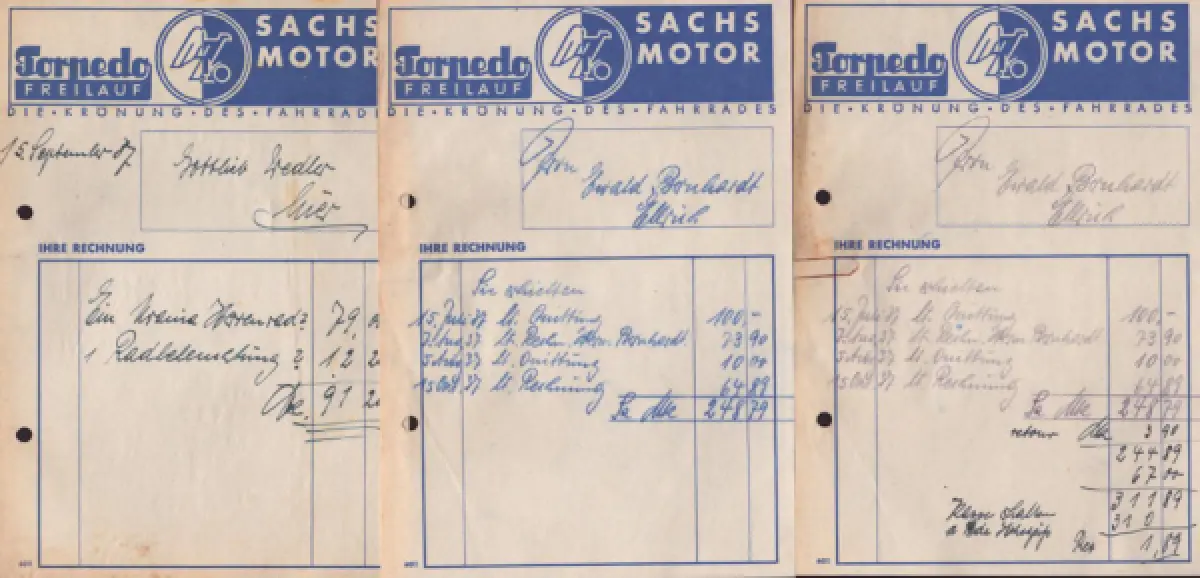 Torpedo
FREILAUF
SACHS
MOTOR
DIE · KRÖNUNG · DES · FAHRRADES
15. September 37
Gottlieb Wedler
Hier
IHRE RECHNUNG
Ein Herrenrad 79,
1 Radbeleuchtung 12 20
91 20
601
Torpedo
FREILAUF
SACHS
MOTOR
DIE · KRÖNUNG · DES · FAHRRADES
Herrn
Ewald Bornhardt
Ellrich
IHRE RECHNUNG
Sie erhielten
15. Juli 37 lt. Quittung 100,-
37 lt. Bornhardt 73 90
37 lt. Quittung 10 00
15 Okt 37 lt. Rechnung 64 89
Sa 248 79
601
Torpedo
FREILAUF
SACHS
MOTOR
DIE · KRÖNUNG · DES · FAHRRADES
Herrn
Ewald Bornhardt
Ellrich
IHRE RECHNUNG
Sie erhielten
15. Juli 37 lt. Quittung 100,-
37 lt. Bornhardt 73 90
37 lt. Quittung 10 00
15 Okt 37 lt. Rechnung 64 89
Sa 248 79
retour 3 90
244 89
67 00
311 89
310
1,89
601